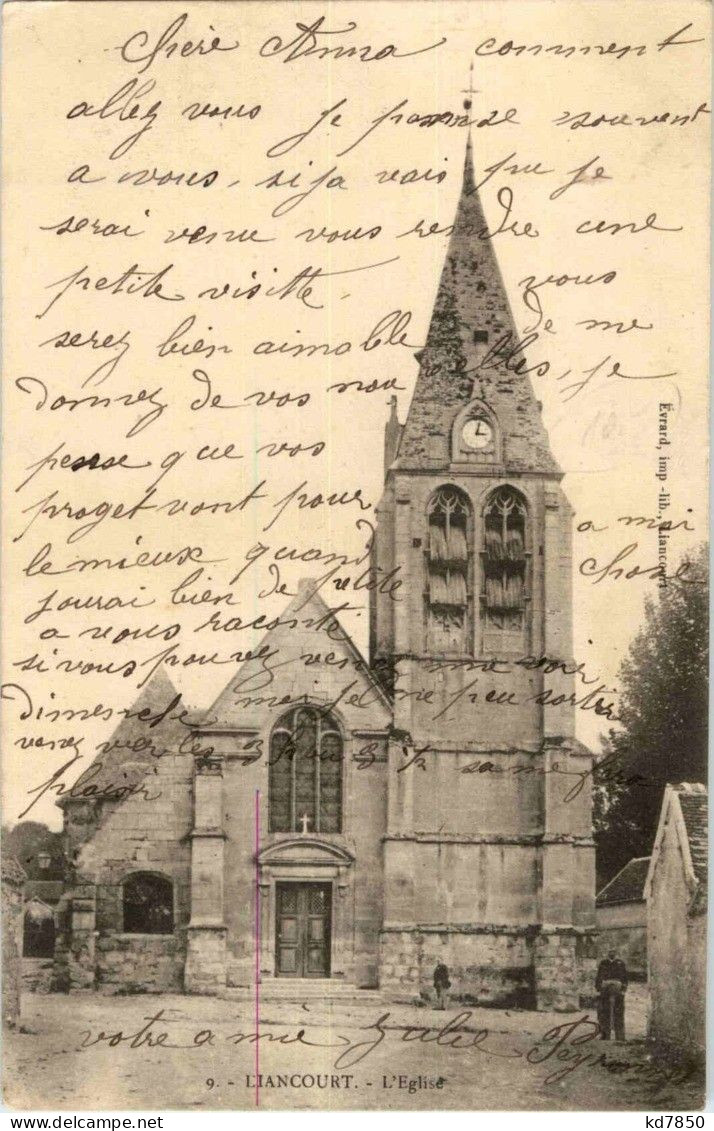 chère Anna comment
allez vous je panse souvent
a vous, si ja vais pu je
serai venue vous rendre une
petite visitte, vous
serez bien aimable de me
donnez de vos nou velles, je
pense que vos
proget vont pour
le mieux quand a moi
jourai bien de petite chose
a vous raconté
si vous pouvez venez me voir
dimenche moi je ne peu sortir
venez vers 3h ou 3h ½ sa me fera
plaisir
votre amie Julie
Évrard, imp.-lib., Liancourt
9. - LIANCOURT. - L'Eglise
www.delcampe.net
kd7850